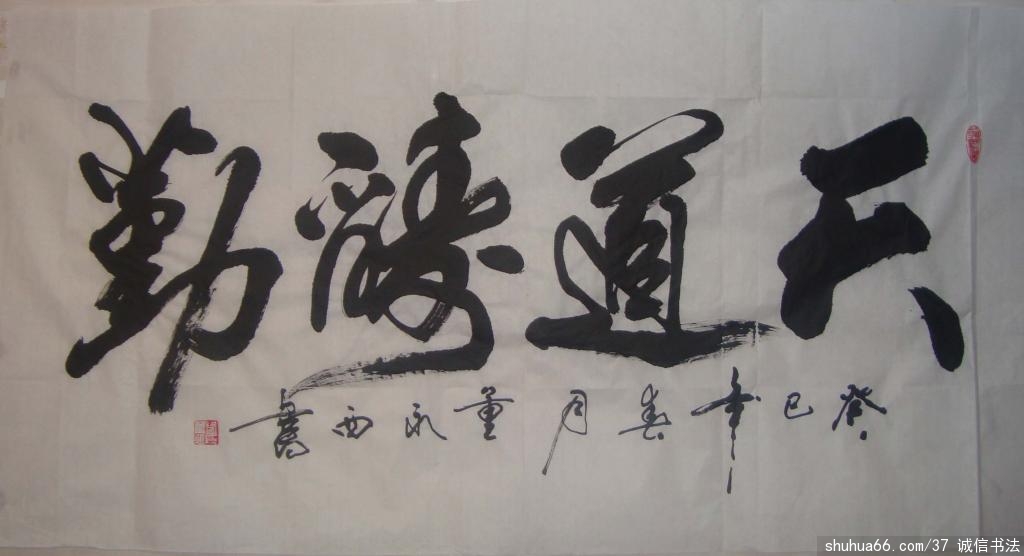 天道酬勤
癸巳年春月董永西書
shuhua66.com/37 诚信书法